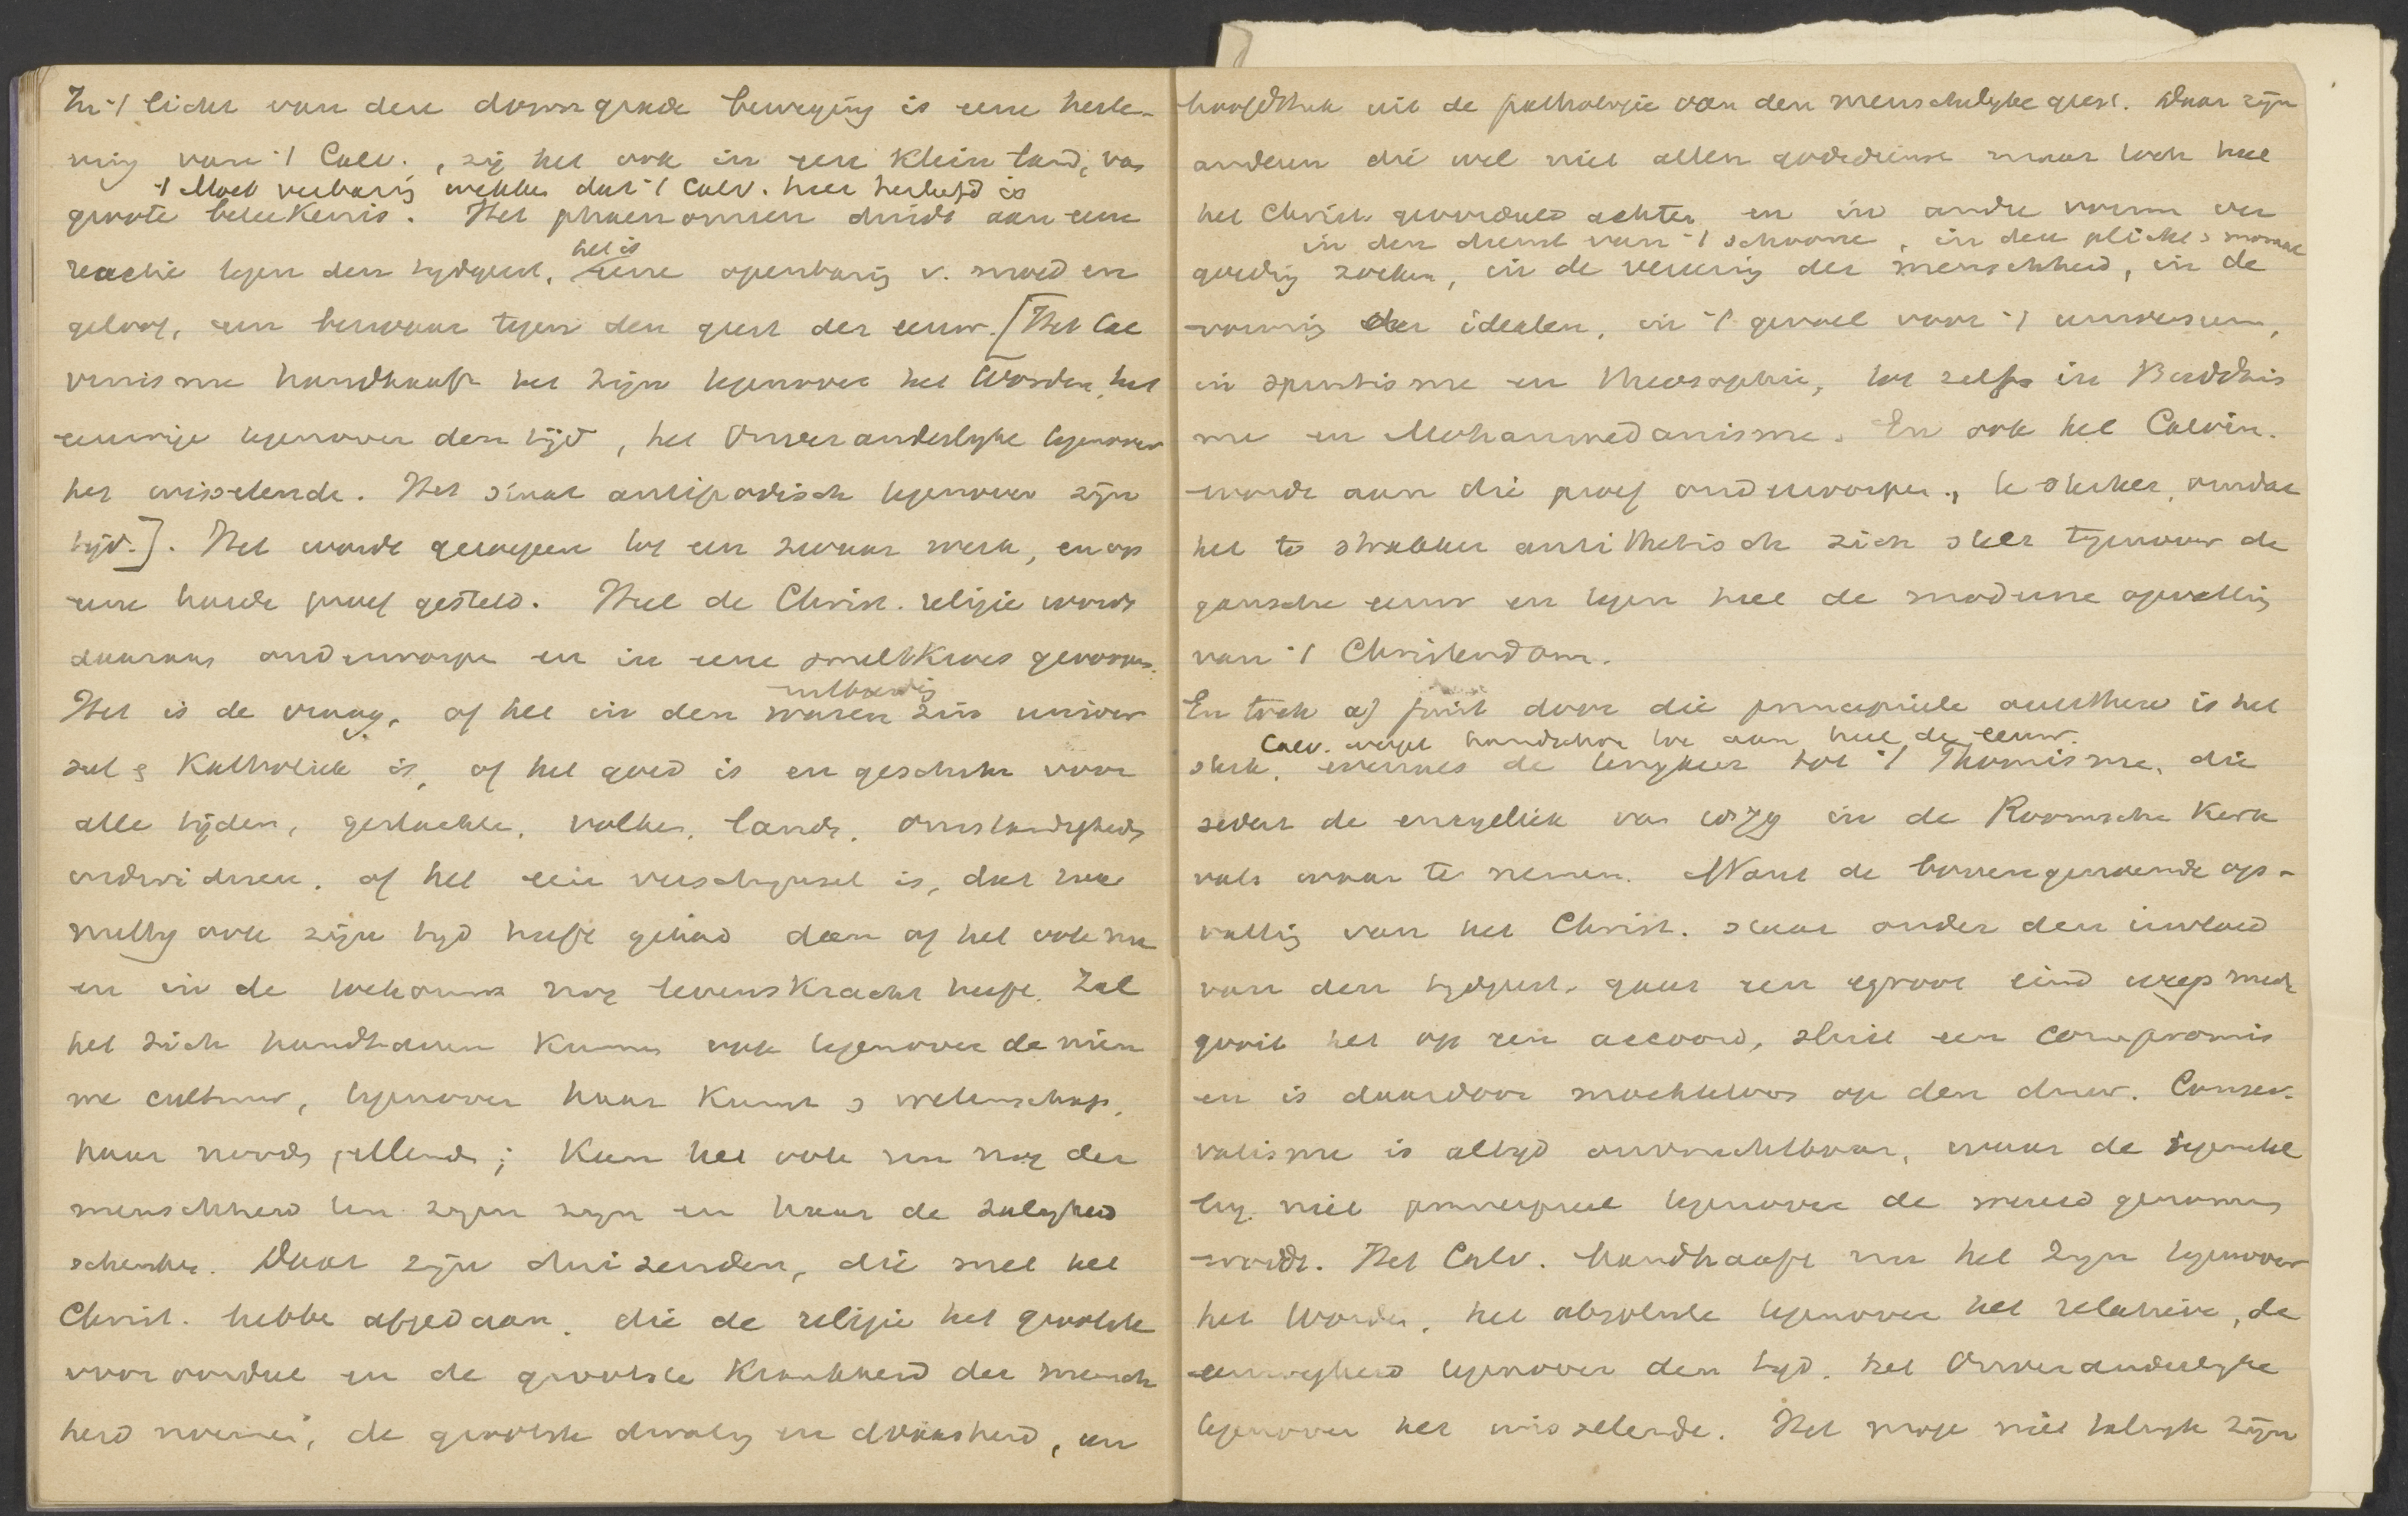 In 't licht van deze doorwgaande beweging is eene herle-
ving van 't Calv., zij het ook in een klein land, van
't Moet verbazing wekken dat 't Calv. hier herleefd is
groote beteekenis. Het phaenomeen duidt aan eene
het is
reactie tegen den tydgeest, eene openbaring v. moed en
geloof, een bezwaar tegen den geest der eeuw. [Het Cal
vinisme handhaaft het zijn tegenover het Worden, het
eeuwige tegenover den tijd, het Onveranderlyke tegenover
het wisselende. Het staat antipodisch tegenover zijn
tijd.]. Het wordt geroepen tot een zwaar werk, en op
eene harde proef gesteld. Heel de Christ. religie wordt
daaraan onderworpen en in eene smeltkroes geworpen.
Het is de vraag, of het in den waren zin univer
seel & Katholiek is, of het goed is en geschikt voor
alle tijden, geslachten, volken, landen, omstandigheden
individuen, of het een verschynsel is, dat zoo
melly ook zijn tyd heeft gehad dan of het ook nu
en in de toekomst nog levenskracht heeft. Zal
het zich handhaven kunnen ook tegenover de nieu
we cultuur, tegenover haar kunst & wetenschap,
haar noods lellende; Kan het ook nu nog der
menschheid ten zegen zyn en haar de zaligheid
schenken. Daar zijn duizenden, die met het
Christ. hebben afgedaan, die de religie het grootste
vooroordeel en de grootste krankheid der mensch
heid noemen, de grootste dwaling en dwaasheid, een
hoofdstuk uit de pathologie van den menschelyke geest. Daar zijn
anderen die wel niet allen godsdienst maar toch heel
het Christ. achter en in andre vorm ver
in den dienst van 't schoone, in den plicht & moraal
goeding zoeken, in de vereering der menschheid, in de
vorming der idealen, in 't gevoel voor 't universum,
in spiritisme en Theosophie, tot zelfs in Buddhis
me en Mohammedanisme. En ook het Calvin.
wordt aan die proef onderworpen, te sterker, omdat
het te strakker antithetisch zich stelt tegenover de
gansche eeuw en tegen heel de moderne opvatting
van 't Christendom.
En toch a) juist door die principieele antithese is het
Calv. werpt handschoen toe aan heel de eeuw.
sterk, evenals de terugkeer tot 't Thomisme, die
sedert de encycliek van 1879 in de Roomsche Kerk
valt waar te nemen. Want de bovengenoemde op-
vatting van het Christ. staat onder den invloed
van den tydgeest, gaat een groot eind weegs mede
gooit het op een accoord, sluit een compromis
en is daardoor machteloos op den duur. Conser-
vatisme is altyd onvruchtbaar, waar de tegenstel
ling niet principieel tegenover de wereld genomen
wordt. Het Calv. handhaaft nu het Zyn tegenover
het Worden, het absolute tegenover het relatieve, de
eeuwigheid tegenover den tyd, het Onveranderlyke
tegenover het wisselende. Het moge niet talryk zijn